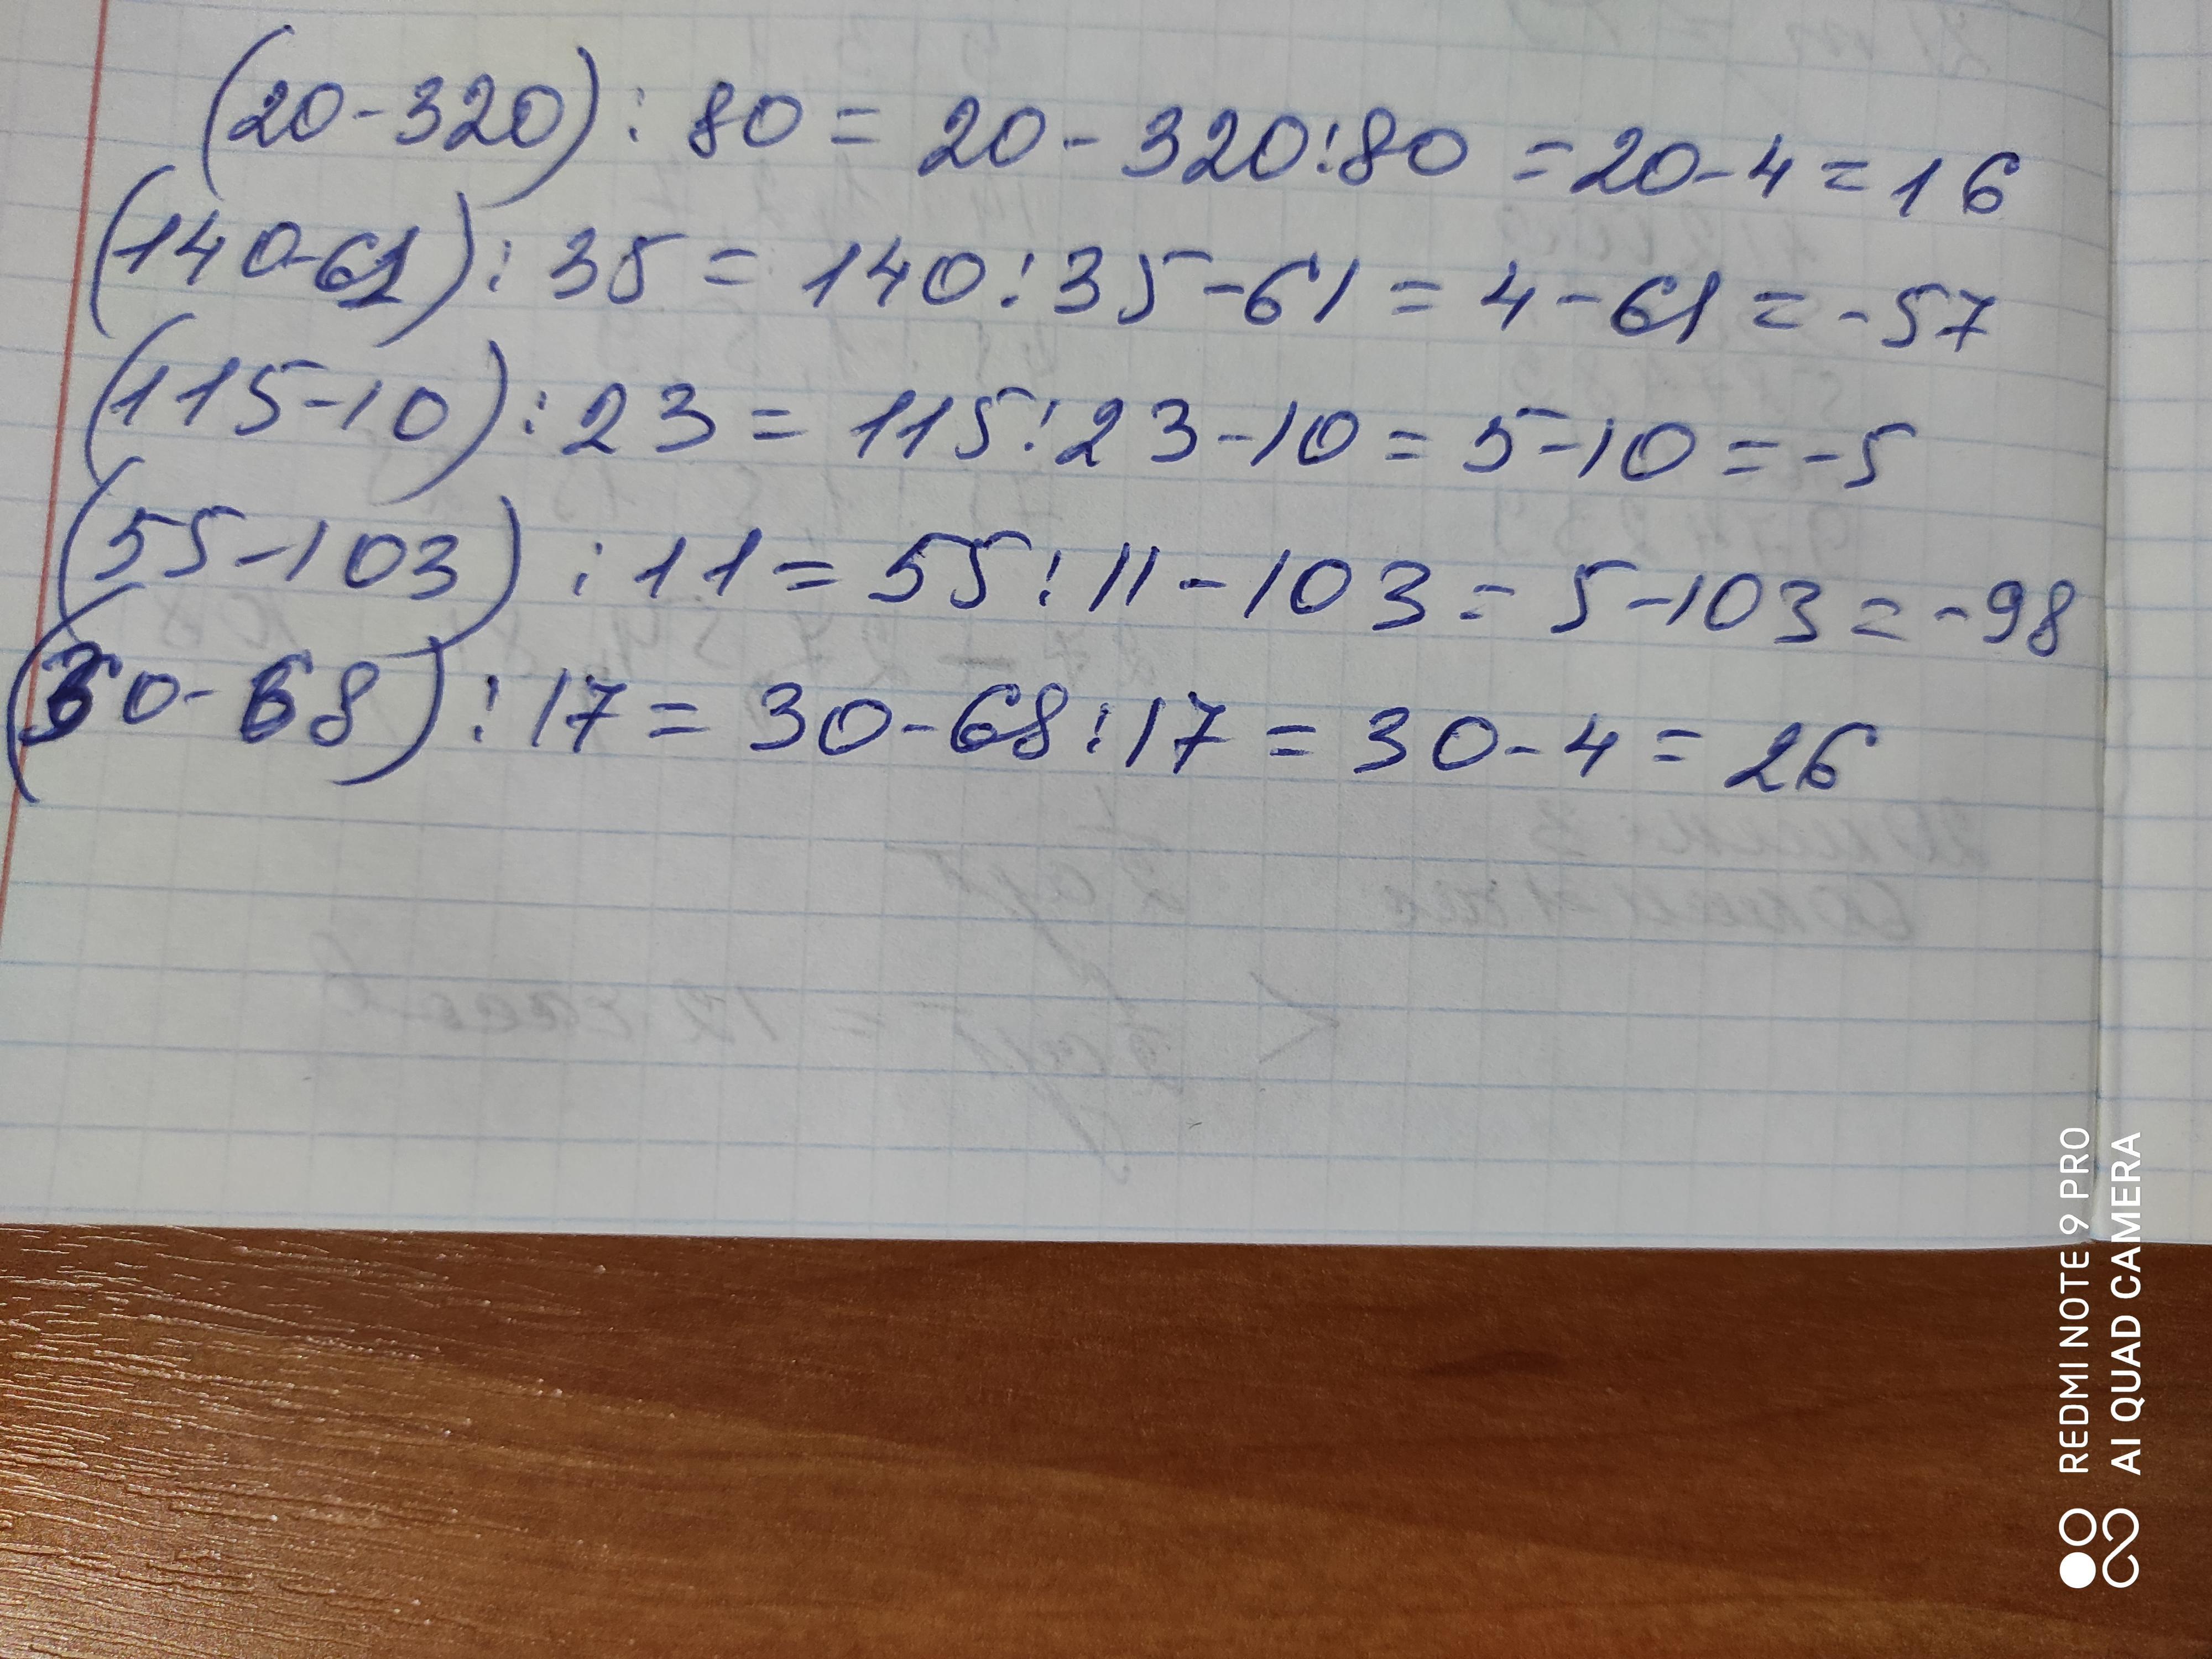 (20-320) : 80 = 20 - 320:80 = 20-4 = 16
(140-61) : 35 = 140:35-61 = 4-61 = -57
(115-10) : 23 = 115:23-10 = 5-10 = -5
(55-103) : 11 = 55:11-103 = 5-103 = -98
(30-68) : 17 = 30-68:17 = 30-4 = 26
REDMI NOTE 9 PRO
AI QUAD CAMERA